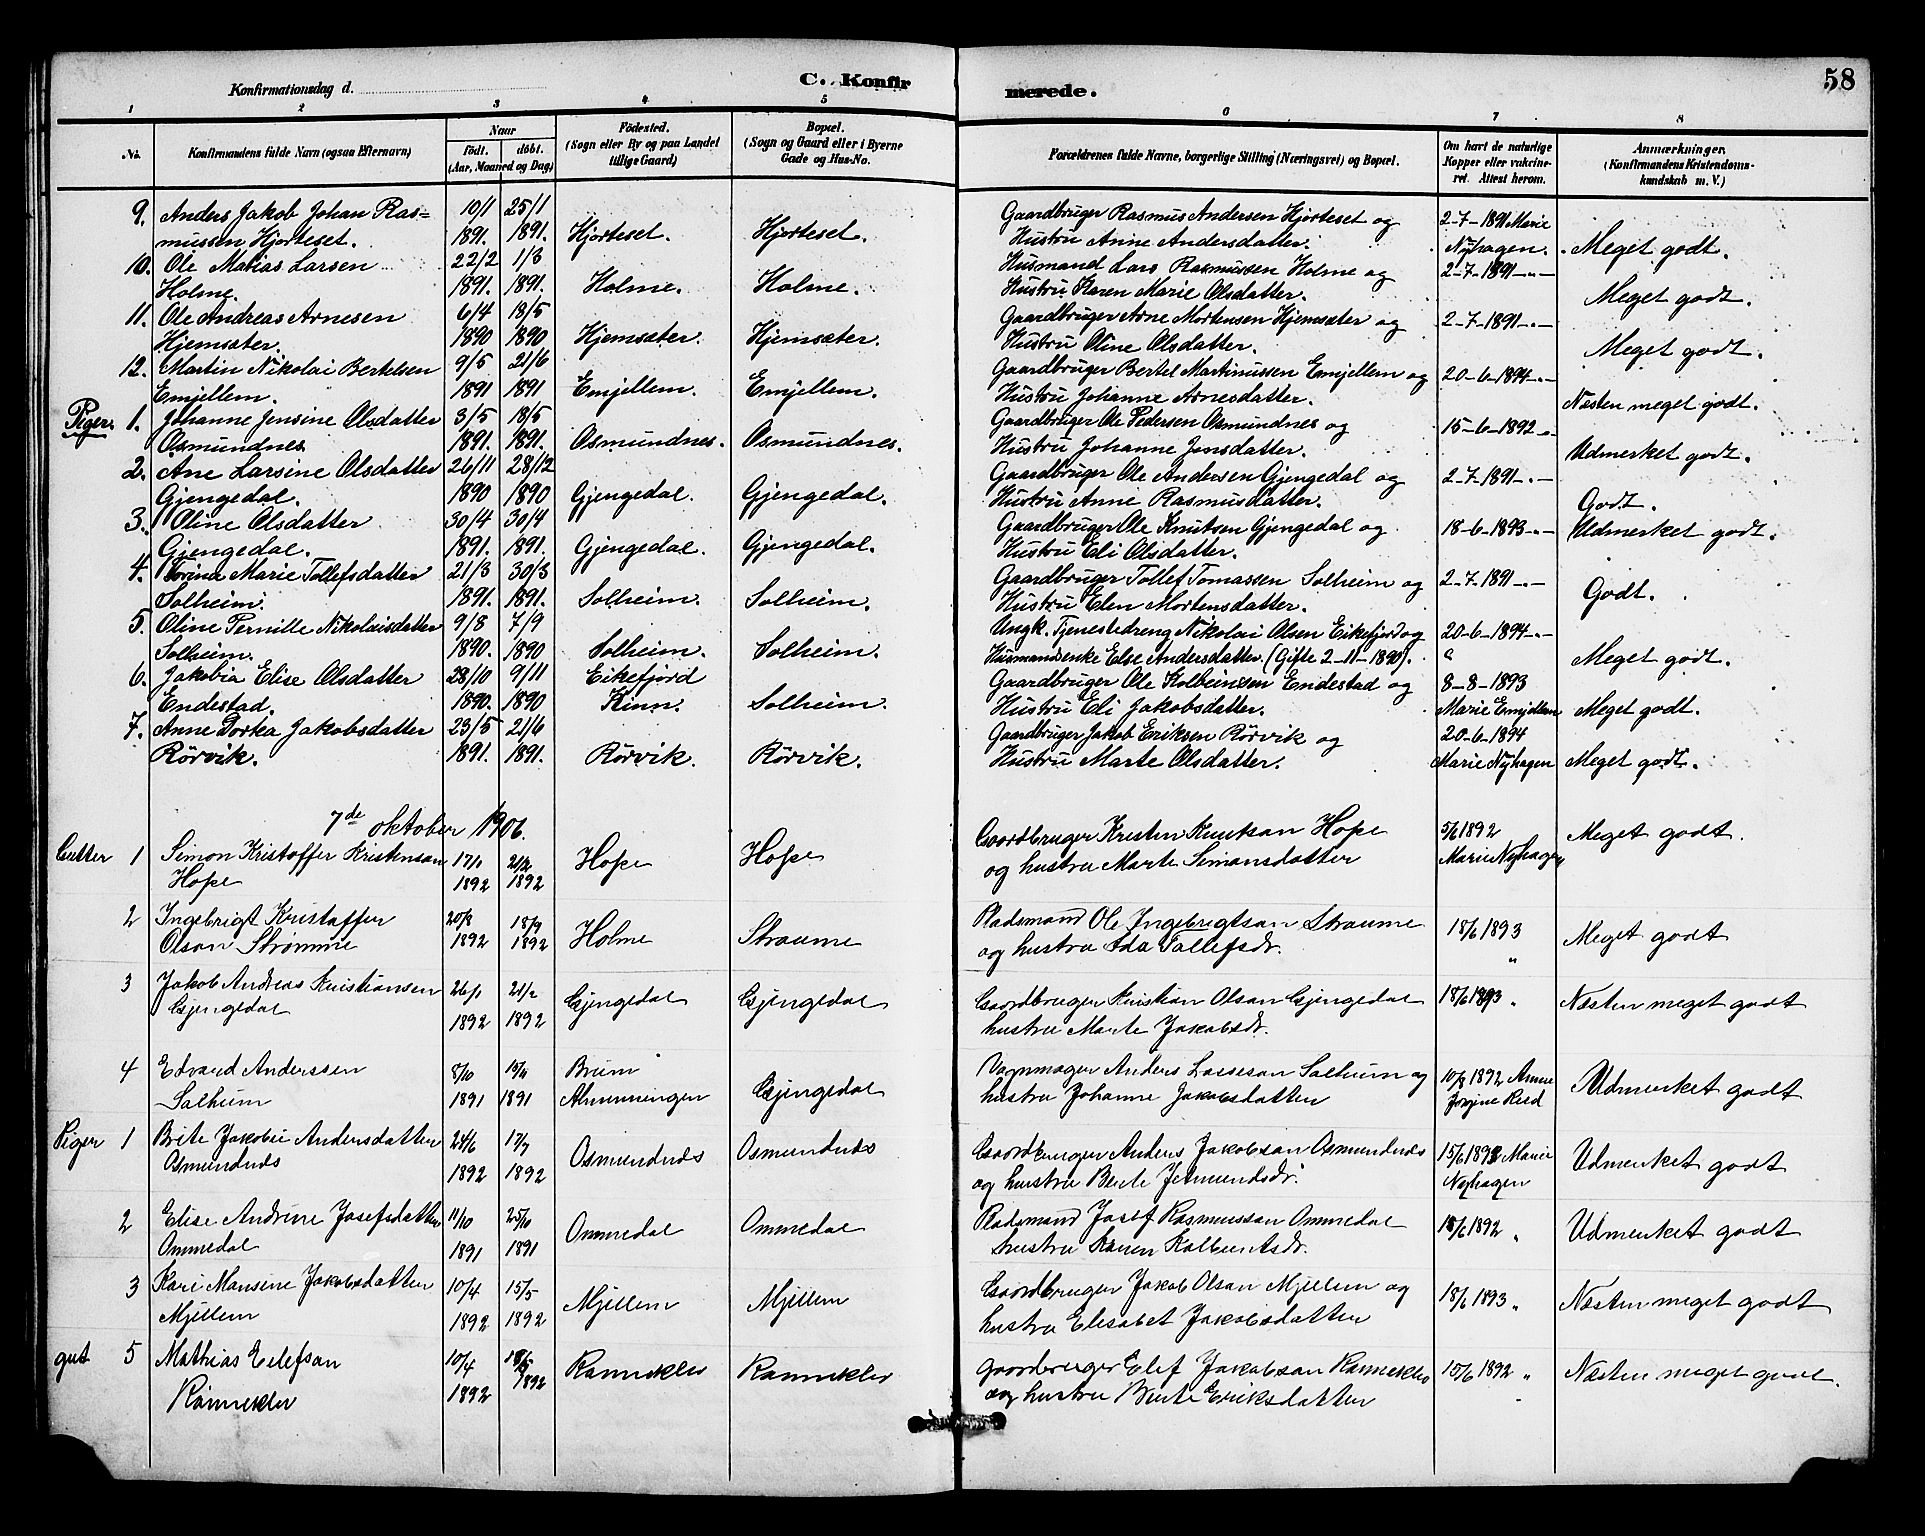 58
C. Konfirmerede.
Konfirmationsdag d.
1 2 3 4 5 6 7 8
No. Konfirmandens fulde Navn (ogsaa Efternavn) Naar født. døbt. (Aar, Maaned og Dag) Födested. (Sogn eller By og paa Landet tillige Gaard) Bopæl. (Sogn og Gaard eller i Byerne Gade og Hus-No. Forældrenes fulde Navne, borgerlige Stilling (Næringsvei) og Bopæl. Om havt de naturlige Kopper eller vakcineret. Attest herom. Anmærkninger. (Konfirmandens Kristendomskundskab m. V.)
9. Anders Jakob Johan Ras= 10/1 25/1 Gaardbruger Rasmus Andersen Hjorteset og 2-7-1891 Marie
mussen Hjorteset. 1891. 1891. Hjorteset. Hjorteset. Hustru Anne Andersdatter. Nyhagen. Meget godt.
10. Ole Matias Larsen 22/2 1/3 Husmand Lars Rasmussen Holme og 2-7-1891-"-
Holme. 1891. 1891. Holme. Holme. Hustru Karen Marie Olsdatter. Meget godt.
11. Ole Andreas Arnesen 6/4 18/5 Gaardbruger Arne Mortensen Hjemsæter og 2-7-1891-"-
Hjemsæter. 1890 1890 Hjemsæter. Hjemsæter. Hustru Oline Olsdatter. Meget godt.
12. Martin Nikolai Bertelsen 9/5 21/6 Gaardbruger Bertel Martinussen Emjellem og 20-6-1894-"-
Emjellem. 1891 1891 Emjellem. Emjellem. Hustru Johanne Arnesdatter. Næsten meget godt.
Piger. 1. Johanne Jensine Olsdatter 3/5 18/5 Gaardbruger Ole Pedersen Osmundnes og 15-6-1892-"-
Osmundnes 1891. 1891. Osmundnes. Osmundnes. Hustru Johanne Jensdatter. Udmerket godt.
2. Ane Larsine Olsdatter 26/11 28/12 Gaardbruger Ole Andersen Gjengedal og 2-7-1891-"-
Gjengedal. 1890 1890 Gjengedal. Gjengedal. Hustru Anne Rasmusdatter. Godt.
3. Oline Olsdatter 30/4 30/4 Gaardbruger Ole Knutsen Gjengedal og 18-6-1893-"- Udmerket godt.
Gjengedal. 1891. 1891. Gjengedal. Gjengedal. Hustru Eli Olsdatter.
4. Torina Marie Tollefsdatter 21/3 30/3 Gaardbruger Tollef Tomassen Solheim og 2-7-1891-"-
Solheim. 1891. 1891. Solheim. Solheim. Hustru Elen Mortensdatter. Godt.
5. Oline Pernille Nikolaisdatter 9/8 7/9 Ungk. Tjenestedreng Nikolai Olsen Eikefjord og 20-6-1894-"-
Solheim. 1890. 1890 Solheim. Solheim. Husmandsenke Else Andersdatter. (Gifte 2-11-1890). " Meget godt.
6. Jakobia Elise Olsdatter 28/10 9/11 Eikefjord Gaardbruger Ole Kolbeinsen Endestad og 8-8-1893
Endestad. 1890. 1890 Kinn. Solheim. Hustru Eli Jakobsdatter. Marie Emjellem Meget godt.
7. Anne Dorka Jakobsdatter 23/5 21/6 Gaardbruger Jakob Eriksen Rörvik og 20-6-1894
Rörvik. 1891. 1891. Rörvik. Rörvik. Hustru Marte Olsdatter. Marie Nyhagen Meget godt.
7de oktober 1906.
Gutter 1 Simon Kristoffer Kristensen 17/1 21/2 Hope Hope Gaardbruger Kristen Knutsan Hope 5/6 1892 Meget godt.
Hope 1892 1892 og hustru Marte Simonsdatter Marie Nyhagen
2 Ingebrigt Kristoffer 20/8 18/9 Holme Straume Pladsmand Ole Ingebrigtsan Straume 18/6 1893 Meget godt
Olsan Strømme 1892 1892 og hustru Ida Tollefsdr. "
3 Jakob Andreas Kristiansen 26/1 21/2 Gjengedal Gjengedal Gaardbruger Kristian Olsan Gjengedal 18/6 1893 " Næsten meget godt
Gjengedal 1892 1892 hustru Marte Jakobsdr.
4 Edvard Anderssen 8/10 15/11 Breim Vognmager Anders Lassesan Solheim og 10/8 1892 Anne Udmerket godt
Solheim 1891 1891 Almenningen Gjengedal hustru Johanne Jakobsdatter
Piger 1 Brite Jakobie Andersdatter 24/6 17/7 Osmundnes Osmundnes Gaardbruger Anders Jakobsan Osmundnes 15/6 1893 Marie Udmerket godt
Osmundnes 1892 1892 og hustru Berte Jetmundsdr. Nyhagen
2 Elise Andrine Josefsdatter 11/10 25/10 Ommedal Ommedal Pladsmand Josef Rasmussan Ommedal 15/6 1892 " Udmerket godt
Ommedal 1891 1891 hustru Karen Kolbeinsdr.
3 Kari Mansine Jakobsdatter 10/4 15/5 Mjellem Mjellem Gaardbruger Jakob Olsan Mjellem og 18/6 1893 " Næsten meget godt
Mjellem 1892 1892 hustru Elisabet Jakobsdatter
gut 5 Mathias Elefsan 10/4 Ranneklev Ranneklev gaardbruger Elef Jakobsan Ranneklev 15/6 1892 " Næsten meget godt.
Ranneklev 1892 1892 og hustru Berte Eriksdatter